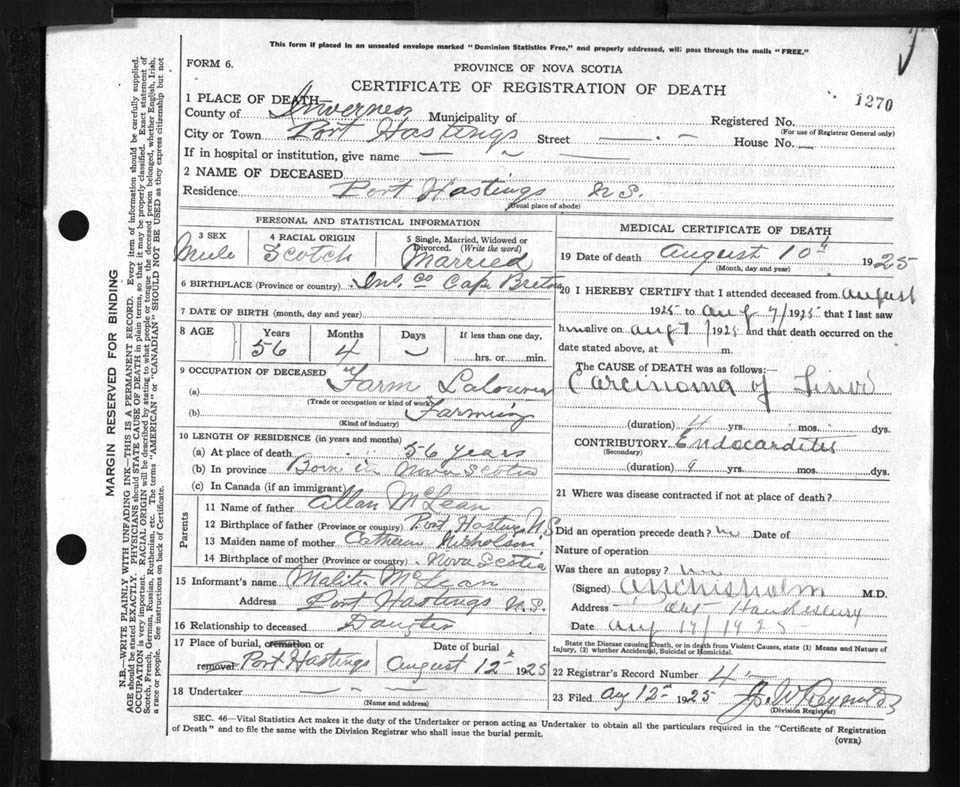 This form if placed in an unsealed envelope marked "Dominion Statistics Free," and properly addressed, will pass through the mails "FREE."
FORM 6.
PROVINCE OF NOVA SCOTIA
CERTIFICATE OF REGISTRATION OF DEATH
1270
1 PLACE OF DEATH
County of Inverness Municipality of Registered No.
(For use of Registrar General only)
City or Town Port Hastings Street — House No. —
If in hospital or institution, give name
2 NAME OF DECEASED
Residence Port Hastings N.S.
(Usual place of abode)
PERSONAL AND STATISTICAL INFORMATION
3 SEX
Male
4 RACIAL ORIGIN
Scotch
5 Single, Married, Widowed or Divorced. (Write the word)
Married
6 BIRTHPLACE (Province or country) Inv. Co Cape Breton
7 DATE OF BIRTH (month, day and year)
8 AGE Years Months Days If less than one day,
56 4 — hrs. or min.
9 OCCUPATION OF DECEASED
(a) Farm
(Trade or occupation or kind of work)
(b) Farming
(Kind of industry)
10 LENGTH OF RESIDENCE (in years and months)
(a) At place of death 56 years
(b) In province Born in Nova Scotia
(c) In Canada (if an immigrant)
Parents
11 Name of father Allan McLean
12 Birthplace of father (Province or country) Port Hastings N.S
13 Maiden name of mother Catherine Nicholson
14 Birthplace of mother (Province or country) Nova Scotia
15 Informant's name McLean
Address Port Hastings N.S.
16 Relationship to deceased Daugter
17 Place of burial, cremation or removal Port Hastings
Date of burial
August 12th 1925
18 Undertaker — — —
(Name and address)
MEDICAL CERTIFICATE OF DEATH
19 Date of death August 10th 1925
(Month, day and year)
20 I HEREBY CERTIFY that I attended deceased from August
1925 to Aug 7/1925 that I last saw
him alive on Aug 7/1925 and that death occurred on the
date stated above, at m.
The CAUSE of DEATH was as follows:—
Carcinoma of Liver
(duration) yrs. mos. dys.
CONTRIBUTORY Endocarditis
(Secondary)
(duration) yrs. mos. dys.
21 Where was disease contracted if not at place of death?
Did an operation precede death? no Date of
Nature of operation
Was there an autopsy? no
(Signed) Chisholm M.D.
Address Port Hawkesbury
Date Aug 1925
State the Disease causing Death, or in death from Violent Causes, state (1) Means and Nature of Injury, (2) whether Accidental, Suicidal or Homicidal.
22 Registrar's Record Number 4
23 Filed Aug 12th 1925
(Division Registrar)
SEC. 46—Vital Statistics Act makes it the duty of the Undertaker or person acting as Undertaker to obtain all the particulars required in the "Certificate of Registration
of Death" and to file the same with the Division Registrar who shall issue the burial permit.
(OVER)
MARGIN RESERVED FOR BINDING
N.B.—WRITE PLAINLY WITH UNFADING INK—THIS IS A PERMANENT RECORD. Every item of information should be carefully supplied.
AGE should be stated EXACTLY. PHYSICIANS should STATE CAUSE OF DEATH in plain terms, so that it may be properly classified. Exact statement of
OCCUPATION is very important. RACIAL ORIGIN will be described by stating to what people or tongue the deceased person belonged, whether English, Irish,
Scotch, French, German, Russian, Ruthenian, etc. The terms "AMERICAN" or "CANADIAN" SHOULD NOT BE USED as they express citizenship but not
a race or people. See instructions on back of Certificate.